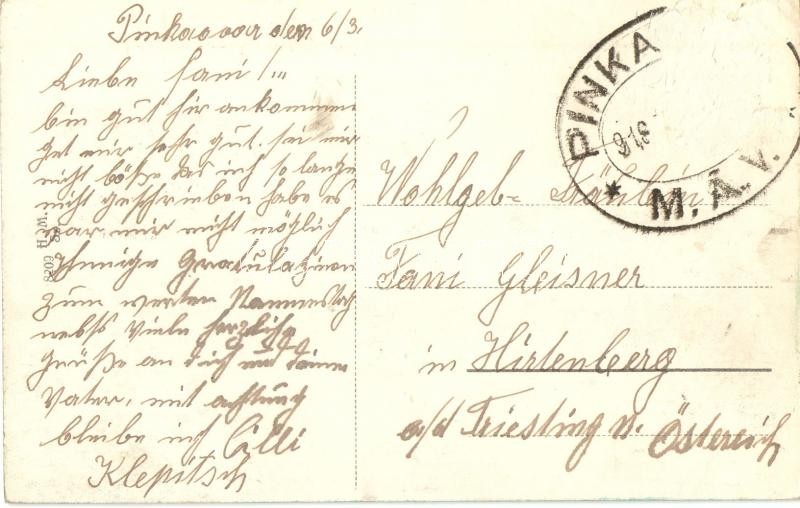 Pinkaovar den 6/3.
Liebe Fani!..
bin gut hir ankommen
get mir sehr gut. sei mir
nicht böße das ich so lange
nicht geschrieben habe es
war mir nicht möglich
Gratulazionen
zum werten Nammestag
nebst viele herzliche
grüße an dich und deinen
Vater, mit achtung
bleibe ich Cilli
Klepitsch
8209 H. W.
PINKA
918
* M. Á. V.
Wohlgeb- Fräulein
Fani Gleisner
in Hirtenberg
a/d Triesting N. Östereich